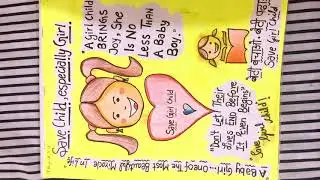 Save Child, especially Girl
"A Girl Child
BRINGS
Joy, She
Is No
Less Than
A Baby
Boy."
Save Girl Child
बेटी बचाओ, बेटी पढ़ाओ
Save Girl Child
"Don't Let Their
Lives End Before
It Even Begins"
Save
girl
"A Baby Girl: One Of The Most Beautiful Miracle In life"